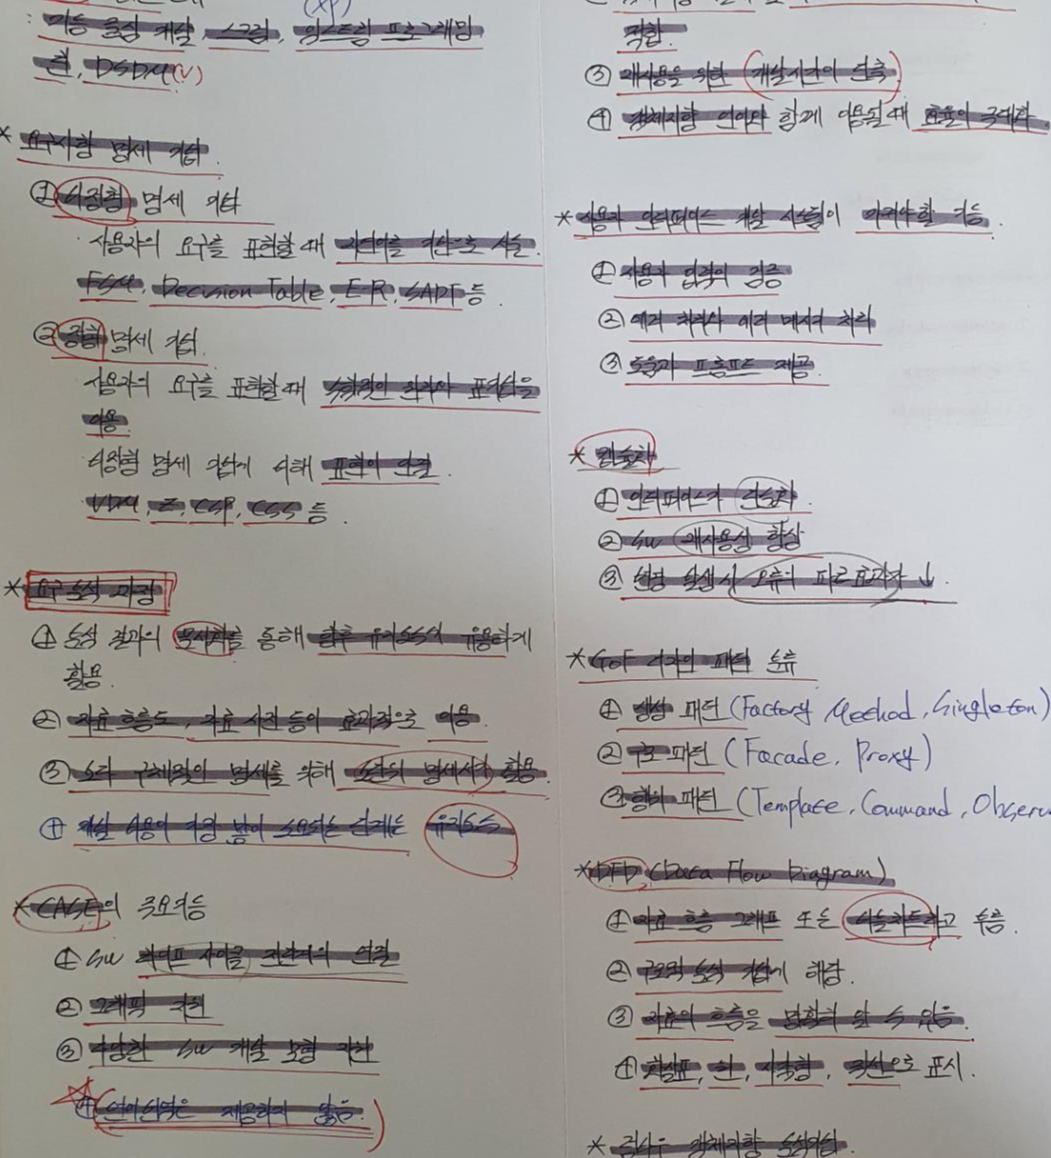 (XP)
: 기능 중심 개발, 스크럼, 익스트림 프로그래밍
린, DSDM(V)
* 요구사항 명세 기법.
① 비정형 명세 기법
· 사용자의 요구를 표현할 때 자연어를 기반으로 서술.
FSM, Decision Table, E-R, SADT 등.
② 정형 명세 기법.
· 사용자의 요구를 표현할 때 수학적인 원리와 표기법을
이용.
· 비정형 명세 기법에 비해 표현이 간결.
· VDM, Z, CSP, CSS 등.
* 요구 분석 과정
① 분석 결과의 문서화를 통해 향후 유지보수에 유용하게
활용.
② 자료 흐름도, 자료 사전 등이 효과적으로 이용.
③ 보다 구체적인 명세를 위해 소단위 명세서가 활용.
④ 개발 비용이 가장 많이 소요되는 단계는 유지보수
* CASE의 주요기능
① SW 라이프 사이클 전단계의 연결
② 그래픽 지원
③ 다양한 SW 개발 모형 지원
④ 언어번역은 제공하지 않음.
적합.
③ 재사용을 위한 개발시간이 단축
④ 객체지향 언어와 함께 이용될 때 효율이 극대화
* 사용자 인터페이스 개발 시스템이 가져야할 기능.
① 사용자 입력의 검증
② 에러 처리와 에러 메시지 처리
③ 도움과 프롬프트 제공.
* 캡슐화
① 인터페이스가 단순화.
② SW 재사용성 향상
③ 변경 발생 시 오류의 파급효과가 ↓.
* GoF 디자인 패턴 분류
① 생성 패턴 (Factory Method, Singleton)
② 구조 패턴 (Facade, Proxy)
③ 행위 패턴 (Template, Command, Observ
* DFD (Data Flow Diagram)
① 자료 흐름 그래프 또는 버블차트라고 부름.
② 구조적 분석 기법에 해당.
③ 자료의 흐름을 명확히 알 수 있음.
④ 화살표, 원, 사각형, 직선으로 표시.
* 객체지향 분석기법.